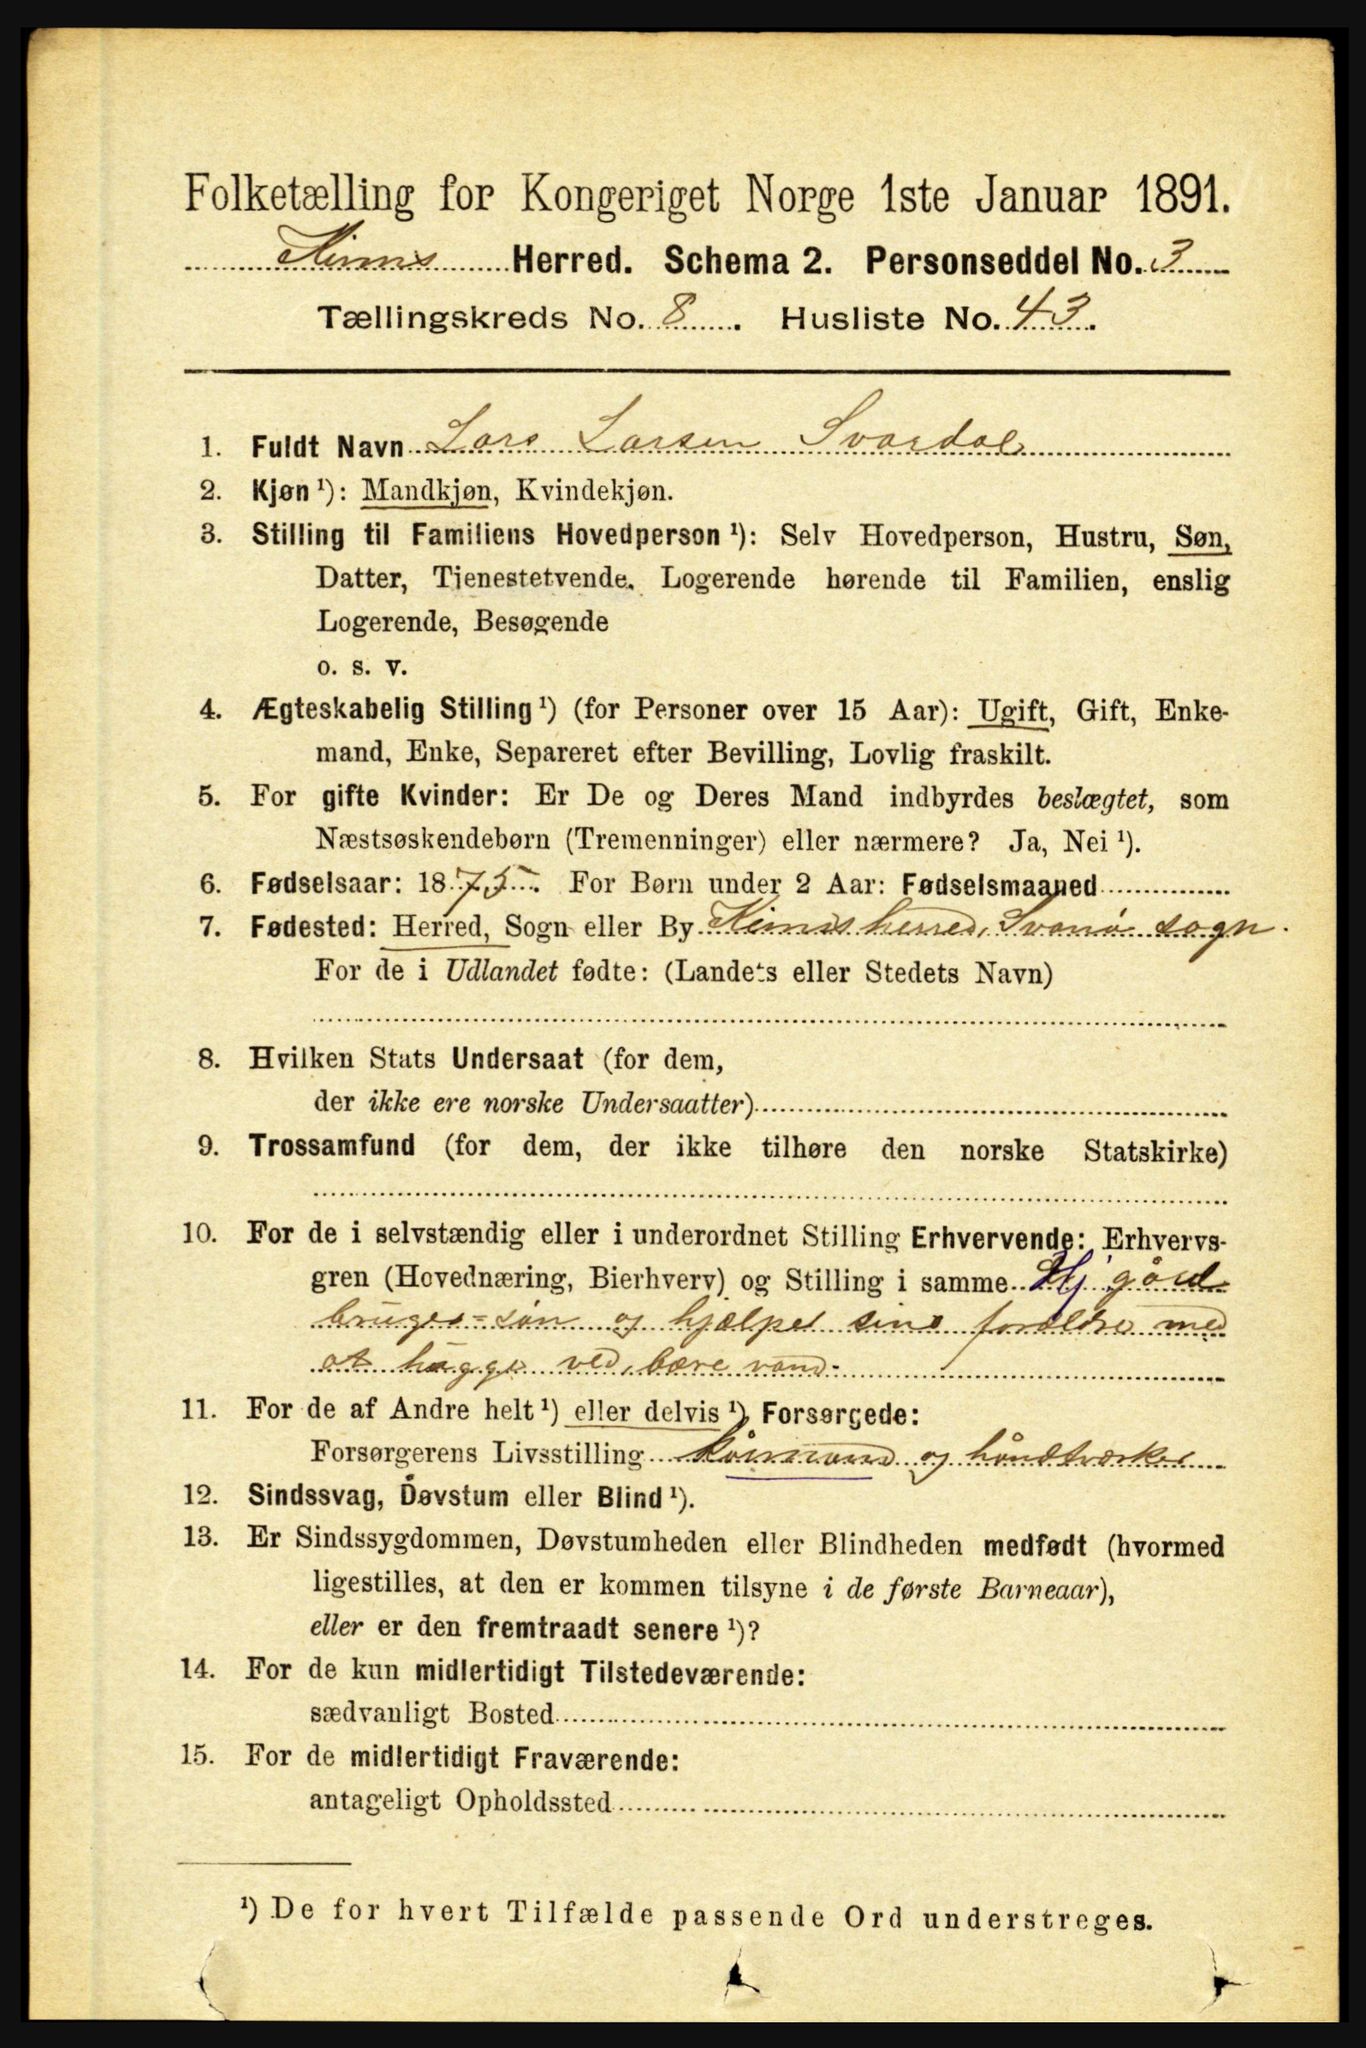 Folketælling for Kongeriget Norge 1ste Januar 1891.
Kinns Herred. Schema 2. Personseddel No. 3
Tællingskreds No. 8. Husliste No. 43.
1. Fuldt Navn Lars Larsen Svardal
2. Kjøn ¹): Mandkjøn, Kvindekjøn.
3. Stilling til Familiens Hovedperson ¹): Selv Hovedperson, Hustru, Søn,
Datter, Tjenestetvende, Logerende hørende til Familien, enslig
Logerende, Besøgende
o. s. v.
4. Ægteskabelig Stilling ¹) (for Personer over 15 Aar): Ugift, Gift, Enke-
mand, Enke, Separeret efter Bevilling, Lovlig fraskilt.
5. For gifte Kvinder: Er De og Deres Mand indbyrdes beslægtet, som
Næstsøskendebørn (Tremenninger) eller nærmere? Ja, Nei ¹).
6. Fødselsaar: 1875. For Børn under 2 Aar: Fødselsmaaned
7. Fødested: Herred, Sogn eller By Kinns herred, Svanø sogn.
For de i Udlandet fødte: (Landets eller Stedets Navn)
8. Hvilken Stats Undersaat (for dem,
der ikke ere norske Undersaatter)
9. Trossamfund (for dem, der ikke tilhøre den norske Statskirke)
10. For de i selvstændig eller i underordnet Stilling Erhvervende: Erhvervs-
gren (Hovednæring, Bierhverv) og Stilling i samme Hj gård
bruges-søn og hjælper sine forældre med
at hugge ved, bære vand.
11. For de af Andre helt ¹) eller delvis ¹) Forsørgede:
Forsørgerens Livsstilling kårmand og håndtværker
12. Sindssvag, Døvstum eller Blind ¹).
13. Er Sindssygdommen, Døvstumheden eller Blindheden medfødt (hvormed
ligestilles, at den er kommen tilsyne i de første Barneaar),
eller er den fremtraadt senere ¹)?
14. For de kun midlertidigt Tilstedeværende:
sædvanligt Bosted
15. For de midlertidigt Fraværende:
antageligt Opholdssted
¹) De for hvert Tilfælde passende Ord understreges.